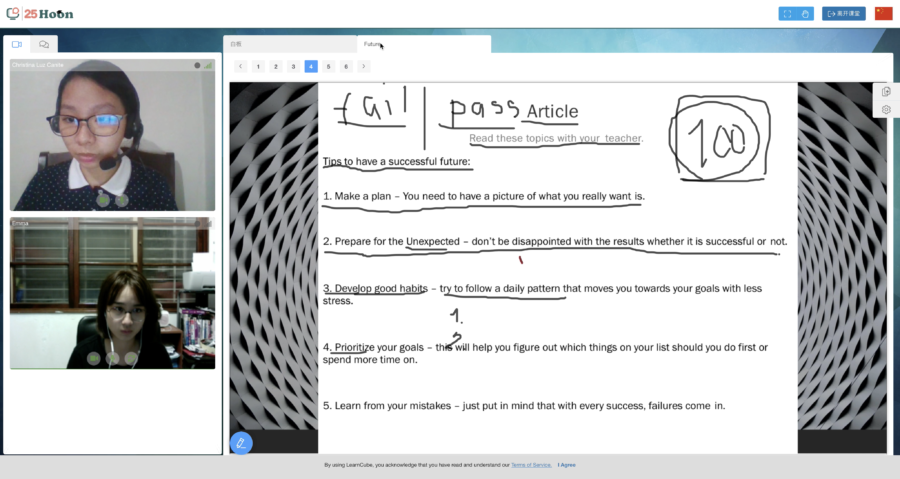 25 Hoon
离开课堂
白板
Future
Christina Luz Canda
1 2 3 4 5 6
fail | pass Article
100
Read these topics with your teacher.
Tips to have a successful future:
1. Make a plan – You need to have a picture of what you really want is.
2. Prepare for the Unexpected – don't be disappointed with the results whether it is successful or not.
3. Develop good habits – try to follow a daily pattern that moves you towards your goals with less
stress.
1.
2
4. Prioritize your goals – this will help you figure out which things on your list should you do first or
spend more time on.
5. Learn from your mistakes – just put in mind that with every success, failures come in.
By using LearnCube, you acknowledge that you have read and understand our Terms of Service. I Agree